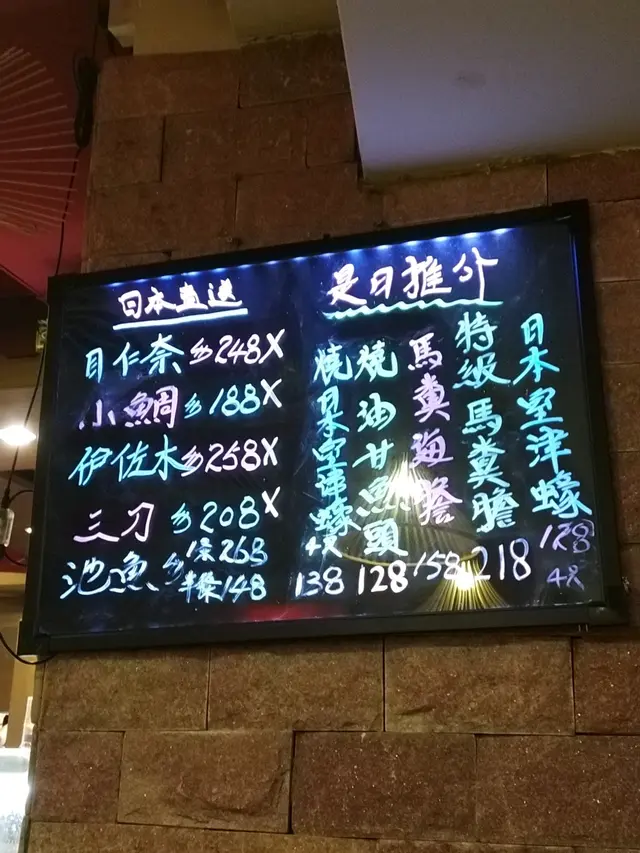 日本直送
目仁奈 $248X
小鯛 $188X
伊佐木 $258X
三刀 $208X
池魚 $ 1条268
半条148
是日推介
日本室津蠔 128 4X
特級馬糞膽 218
馬糞海膽 158
燒油甘魚頭 128
燒日本室津蠔 4X 138